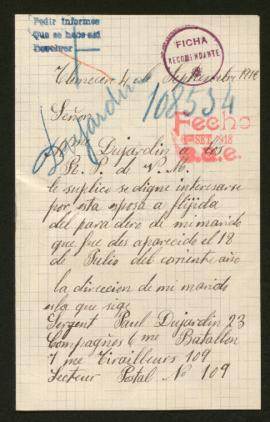 Pedir informes
Que se hace así
Devolver
FICHA
RECOMENDANTE
4 de Septiembre 1918
108554
Dujardin
Señor
Fecho
SET. 1918
Dujardin a los
R. P. de V. M.
le suplico se digne interesarse
por esta esposa aflijida
del paradero de mi marido
que fue desaparecido el 18
de Julio del coriente año
la direccion de mi marido
es la que sige
Sergent Paul Dujardin 23
Compagñes 6 me Batallon
7 me Tirailleurs 109
Secteur Postal Nº 109